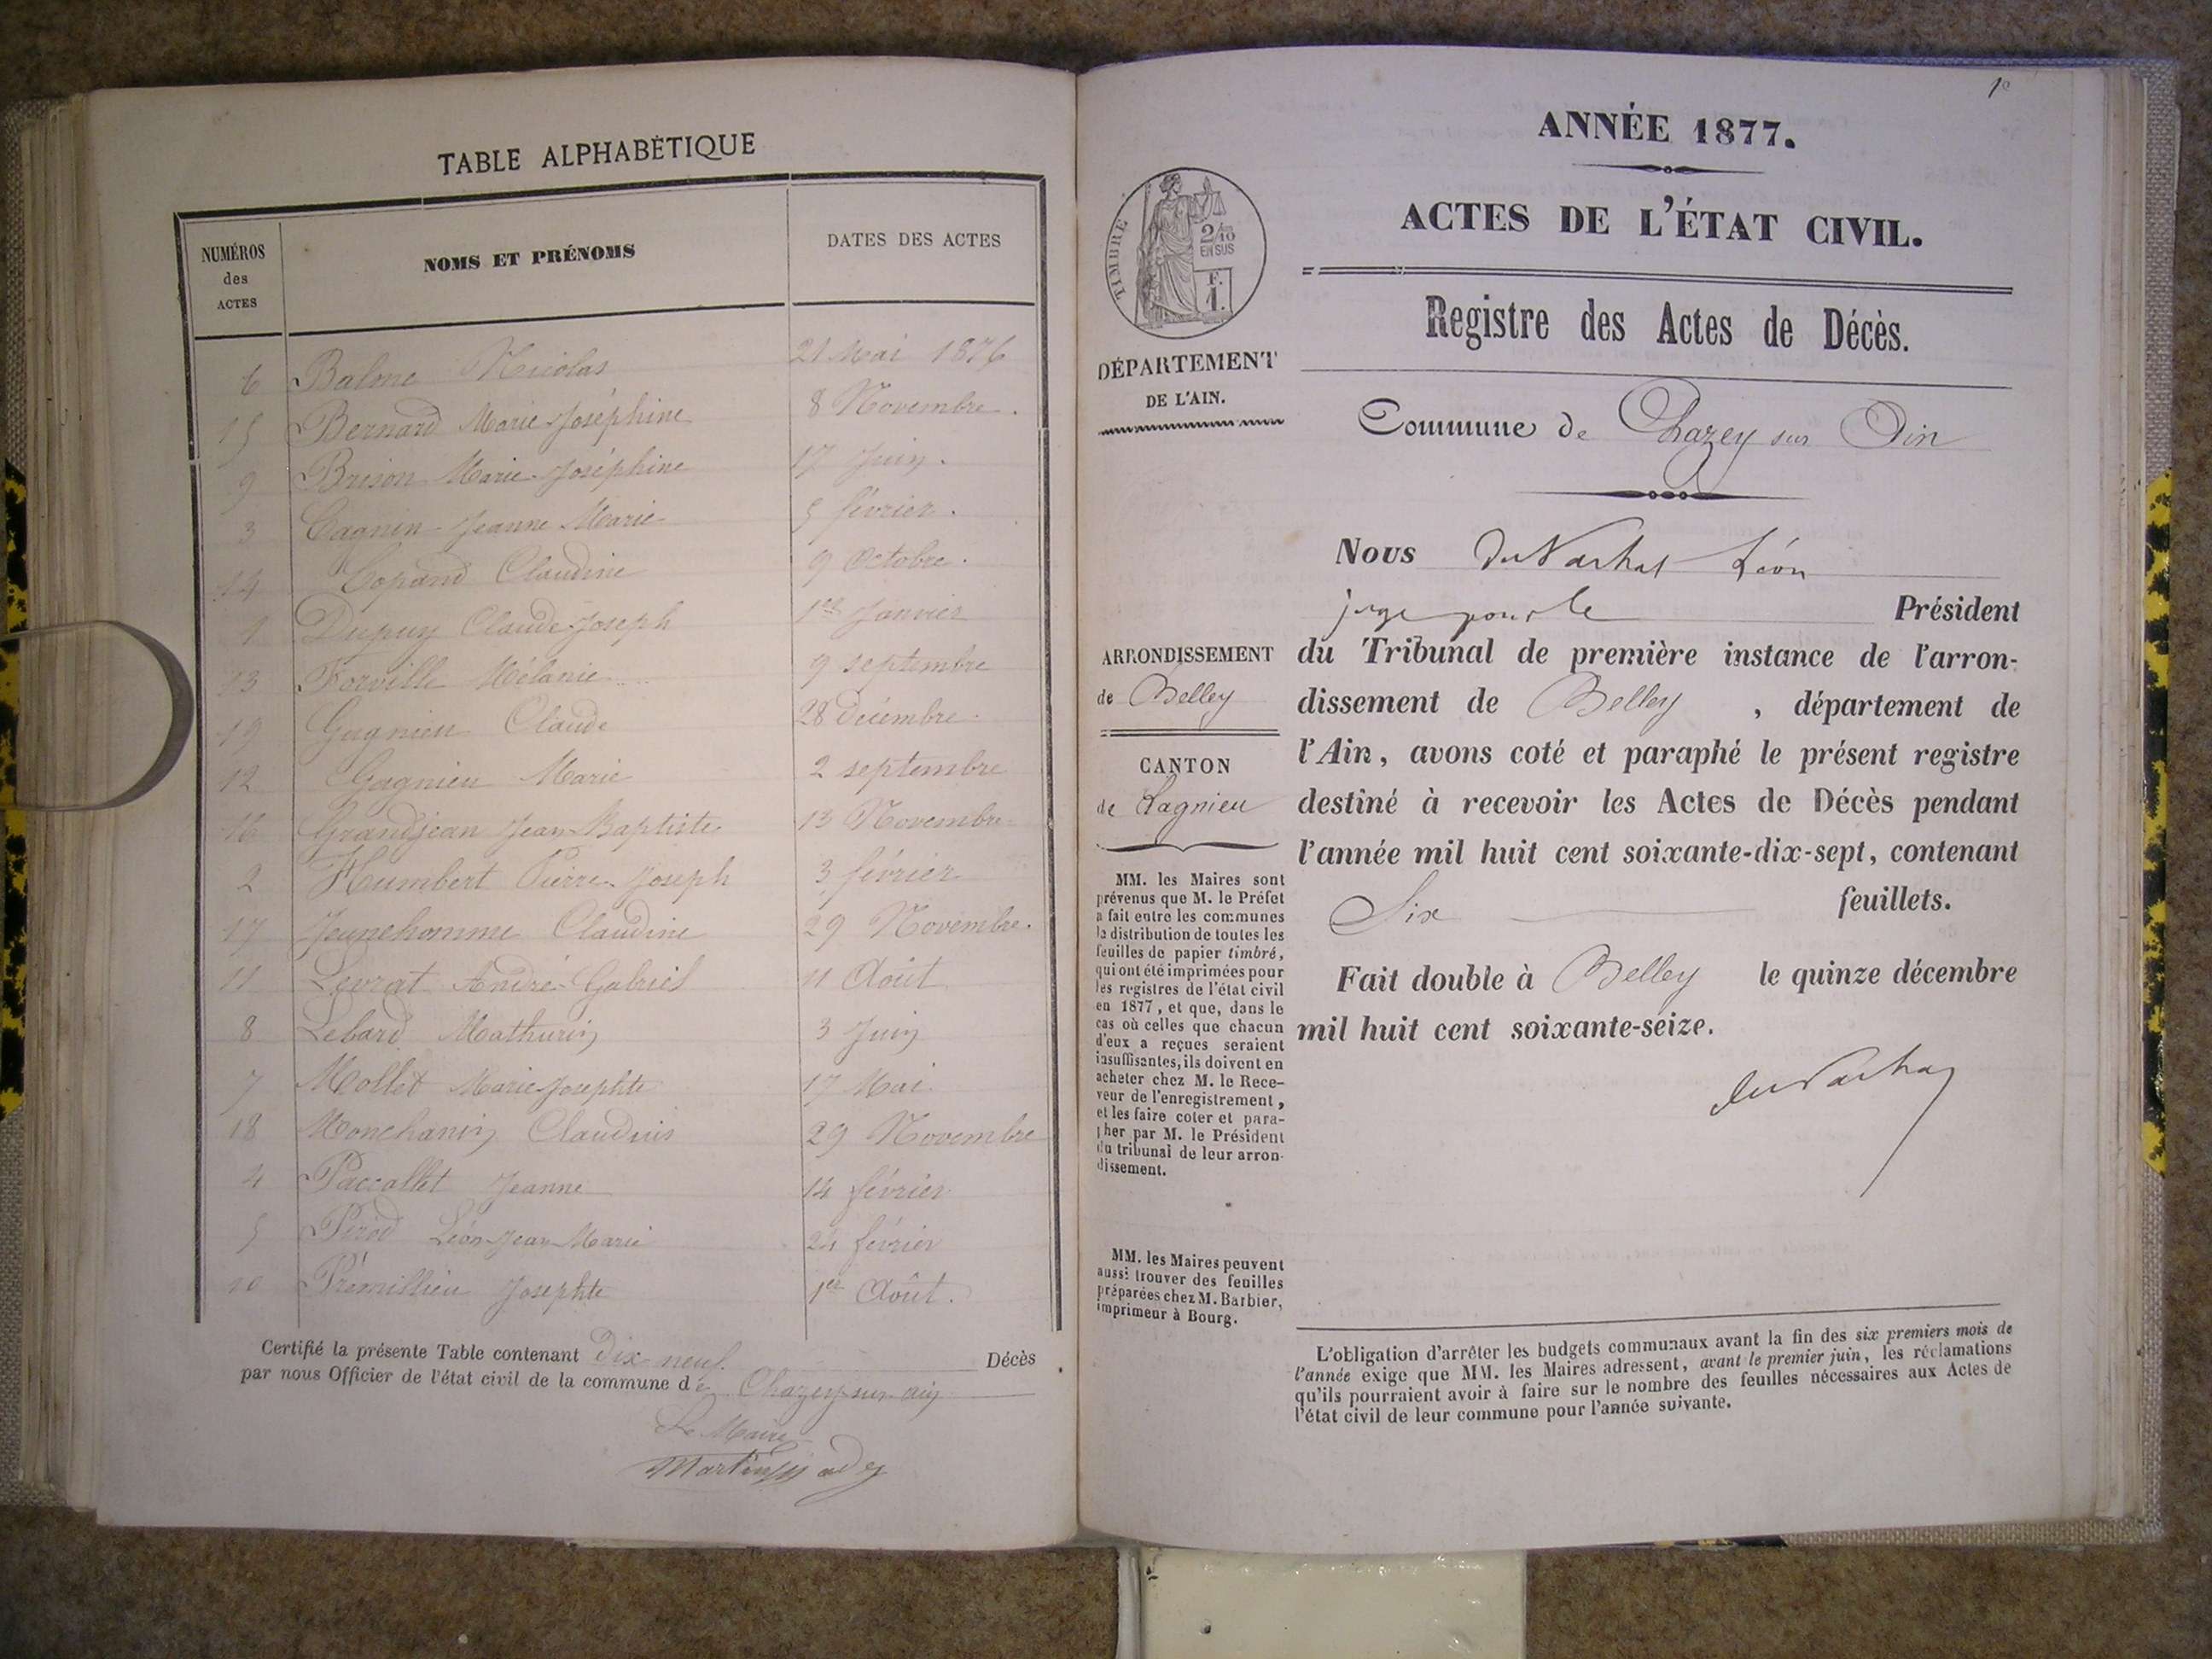 TABLE ALPHABÉTIQUE
NUMÉROS des ACTES NOMS ET PRÉNOMS DATES DES ACTES
6 Balme Nicolas 21 Mai 1876
15 Bernard Marie Joséphine 8 Novembre.
9 Brison Marie Joséphine 17 Juin.
3 Cagnin Jeanne Marie 5 février.
14 Copand Claudine 9 Octobre.
1 Dupuy Claude Joseph 1er Janvier
13 Forville Mélanie 9 septembre
19 Gagnieu Claude 28 Décembre.
12 Gagnieu Marie 2 septembre
16 Grandjean Jean Baptiste 13 Novembre
2 Humbert Pierre Joseph 3 février
17 Jeunehomme Claudine 29 Novembre.
11 Levrat André Gabriel 11 Août
8 Lebard Mathurin 3 Juin
7 Mollet Marie Josephte 17 Mai
18 Monchanin Claudius 29 Novembre
4 Paccallet Jeanne 14 février
5 Pérod Léon Jean Marie 24 février
10 Prémillieu Josephte 1er Août.
Certifié la présente Table contenant dix neuf Décès
par nous Officier de l'état civil de la commune de Chazey sur ain
Le Maire
1e
ANNÉE 1877.
ACTES DE L'ÉTAT CIVIL.
Registre des Actes de Décès.
TIMBRE
2/10
EN SUS
F.
1.
DÉPARTEMENT
DE L'AIN.
Commune de Chazey sur Ain
Nous Léon
juge pour le Président
ARRONDISSEMENT
de Belley
CANTON
de Lagnieu
du Tribunal de première instance de l'arron-
dissement de Belley , département de
l'Ain, avons coté et paraphé le présent registre
destiné à recevoir les Actes de Décès pendant
l'année mil huit cent soixante-dix-sept, contenant
Six feuillets.
Fait double à Belley le quinze décembre
mil huit cent soixante-seize.
MM. les Maires sont
prévenus que M. le Préfet
a fait entre les communes
la distribution de toutes les
feuilles de papier timbré,
qui ont été imprimées pour
les registres de l'état civil
en 1877, et que, dans le
cas où celles que chacun
d'eux a reçues seraient
insuffisantes, ils doivent en
acheter chez M. le Rece-
veur de l'enregistrement,
et les faire coter et para-
pher par M. le Président
du tribunal de leur arron-
dissement.
MM. les Maires peuvent
aussi trouver des feuilles
préparées chez M. Barbier,
imprimeur à Bourg.
L'obligation d'arrêter les budgets communaux avant la fin des six premiers mois de
l'année exige que MM. les Maires adressent, avant le premier juin, les réclamations
qu'ils pourraient avoir à faire sur le nombre des feuilles nécessaires aux Actes de
l'état civil de leur commune pour l'année suivante.